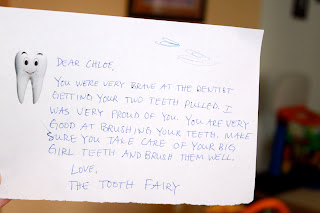 DEAR CHLOE,
YOU WERE VERY BRAVE AT THE DENTIST
GETTING YOUR TWO TEETH PULLED. I
WAS VERY PROUD OF YOU. YOU ARE VERY
GOOD AT BRUSHING YOUR TEETH. MAKE
SURE YOU TAKE CARE OF YOUR BIG
GIRL TEETH AND BRUSH THEM WELL.
LOVE,
THE TOOTH FAIRY